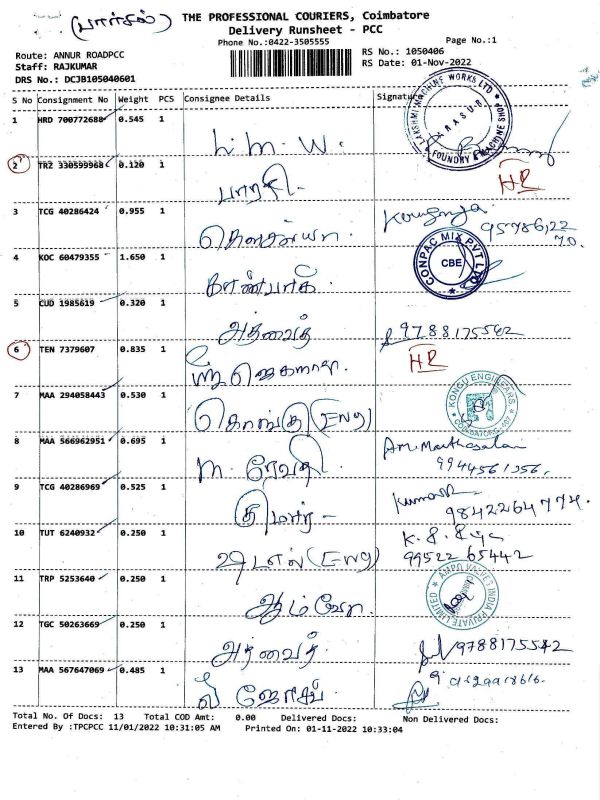 (பார்சல்)
THE PROFESSIONAL COURIERS, Coimbatore
Delivery Runsheet - PCC
Phone No.:0422-3505555
Page No.:1
Route: ANNUR ROADPCC
RS No.: 1050406
Staff: RAJKUMAR
RS Date: 01-Nov-2022
DRS No.: DCJB105040601
S No Consignment No Weight PCS Consignee Details Signature
1 HRD 700772688 0.545 1 L. M. W.
LAKSHMI MACHINE WORKS LTD
ARASUR
FOUNDRY & MACHINE SHOP
2 TRZ 330599968 0.120 1 பாரதி. HR
3 TCG 40286424 0.955 1 கௌசன்யா.
4 KOC 60479355 1.650 1 கான்பாக்
CONPAC MIX PVT LTD
CBE
5 CUD 1985619 0.320 1 அத்வைத் 9788175542
6 TEN 7379607 0.835 1 HR
7 MAA 294058443 0.530 1 கொங்கு (ENG)
KONGU ENGINEERS
8 MAA 566962951 0.695 1 M. ரேவதி.
9 TCG 40286969 0.525 1 குமார் 9842264774.
10 TUT 6240932 0.250 1 (ENG) 99522 65442
11 TRP 5253640 0.250 1
12 TGC 50263669 0.250 1 அத்வைத் 9788175542
13 MAA 567647069 0.485 1 ஜோசப்
Total No. Of Docs: 13 Total COD Amt: 0.00 Delivered Docs: Non Delivered Docs:
Entered By :TPCPCC 11/01/2022 10:31:05 AM Printed On: 01-11-2022 10:33:04